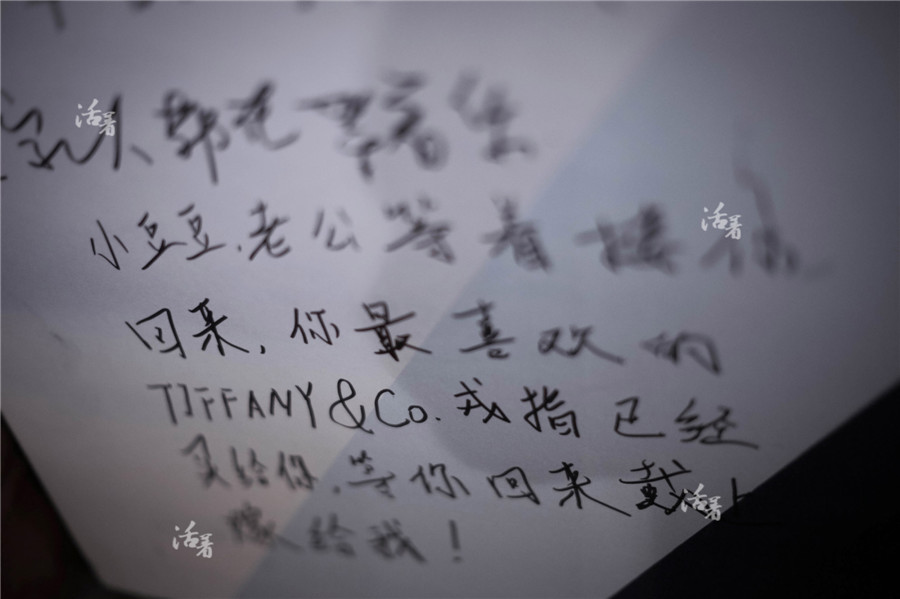 人
活着
小豆豆,老公等着接你
活着
回来,你最喜欢的
TIFFANY&Co.戒指已经
买给你,等你回来戴上
活着
嫁给我!
活着